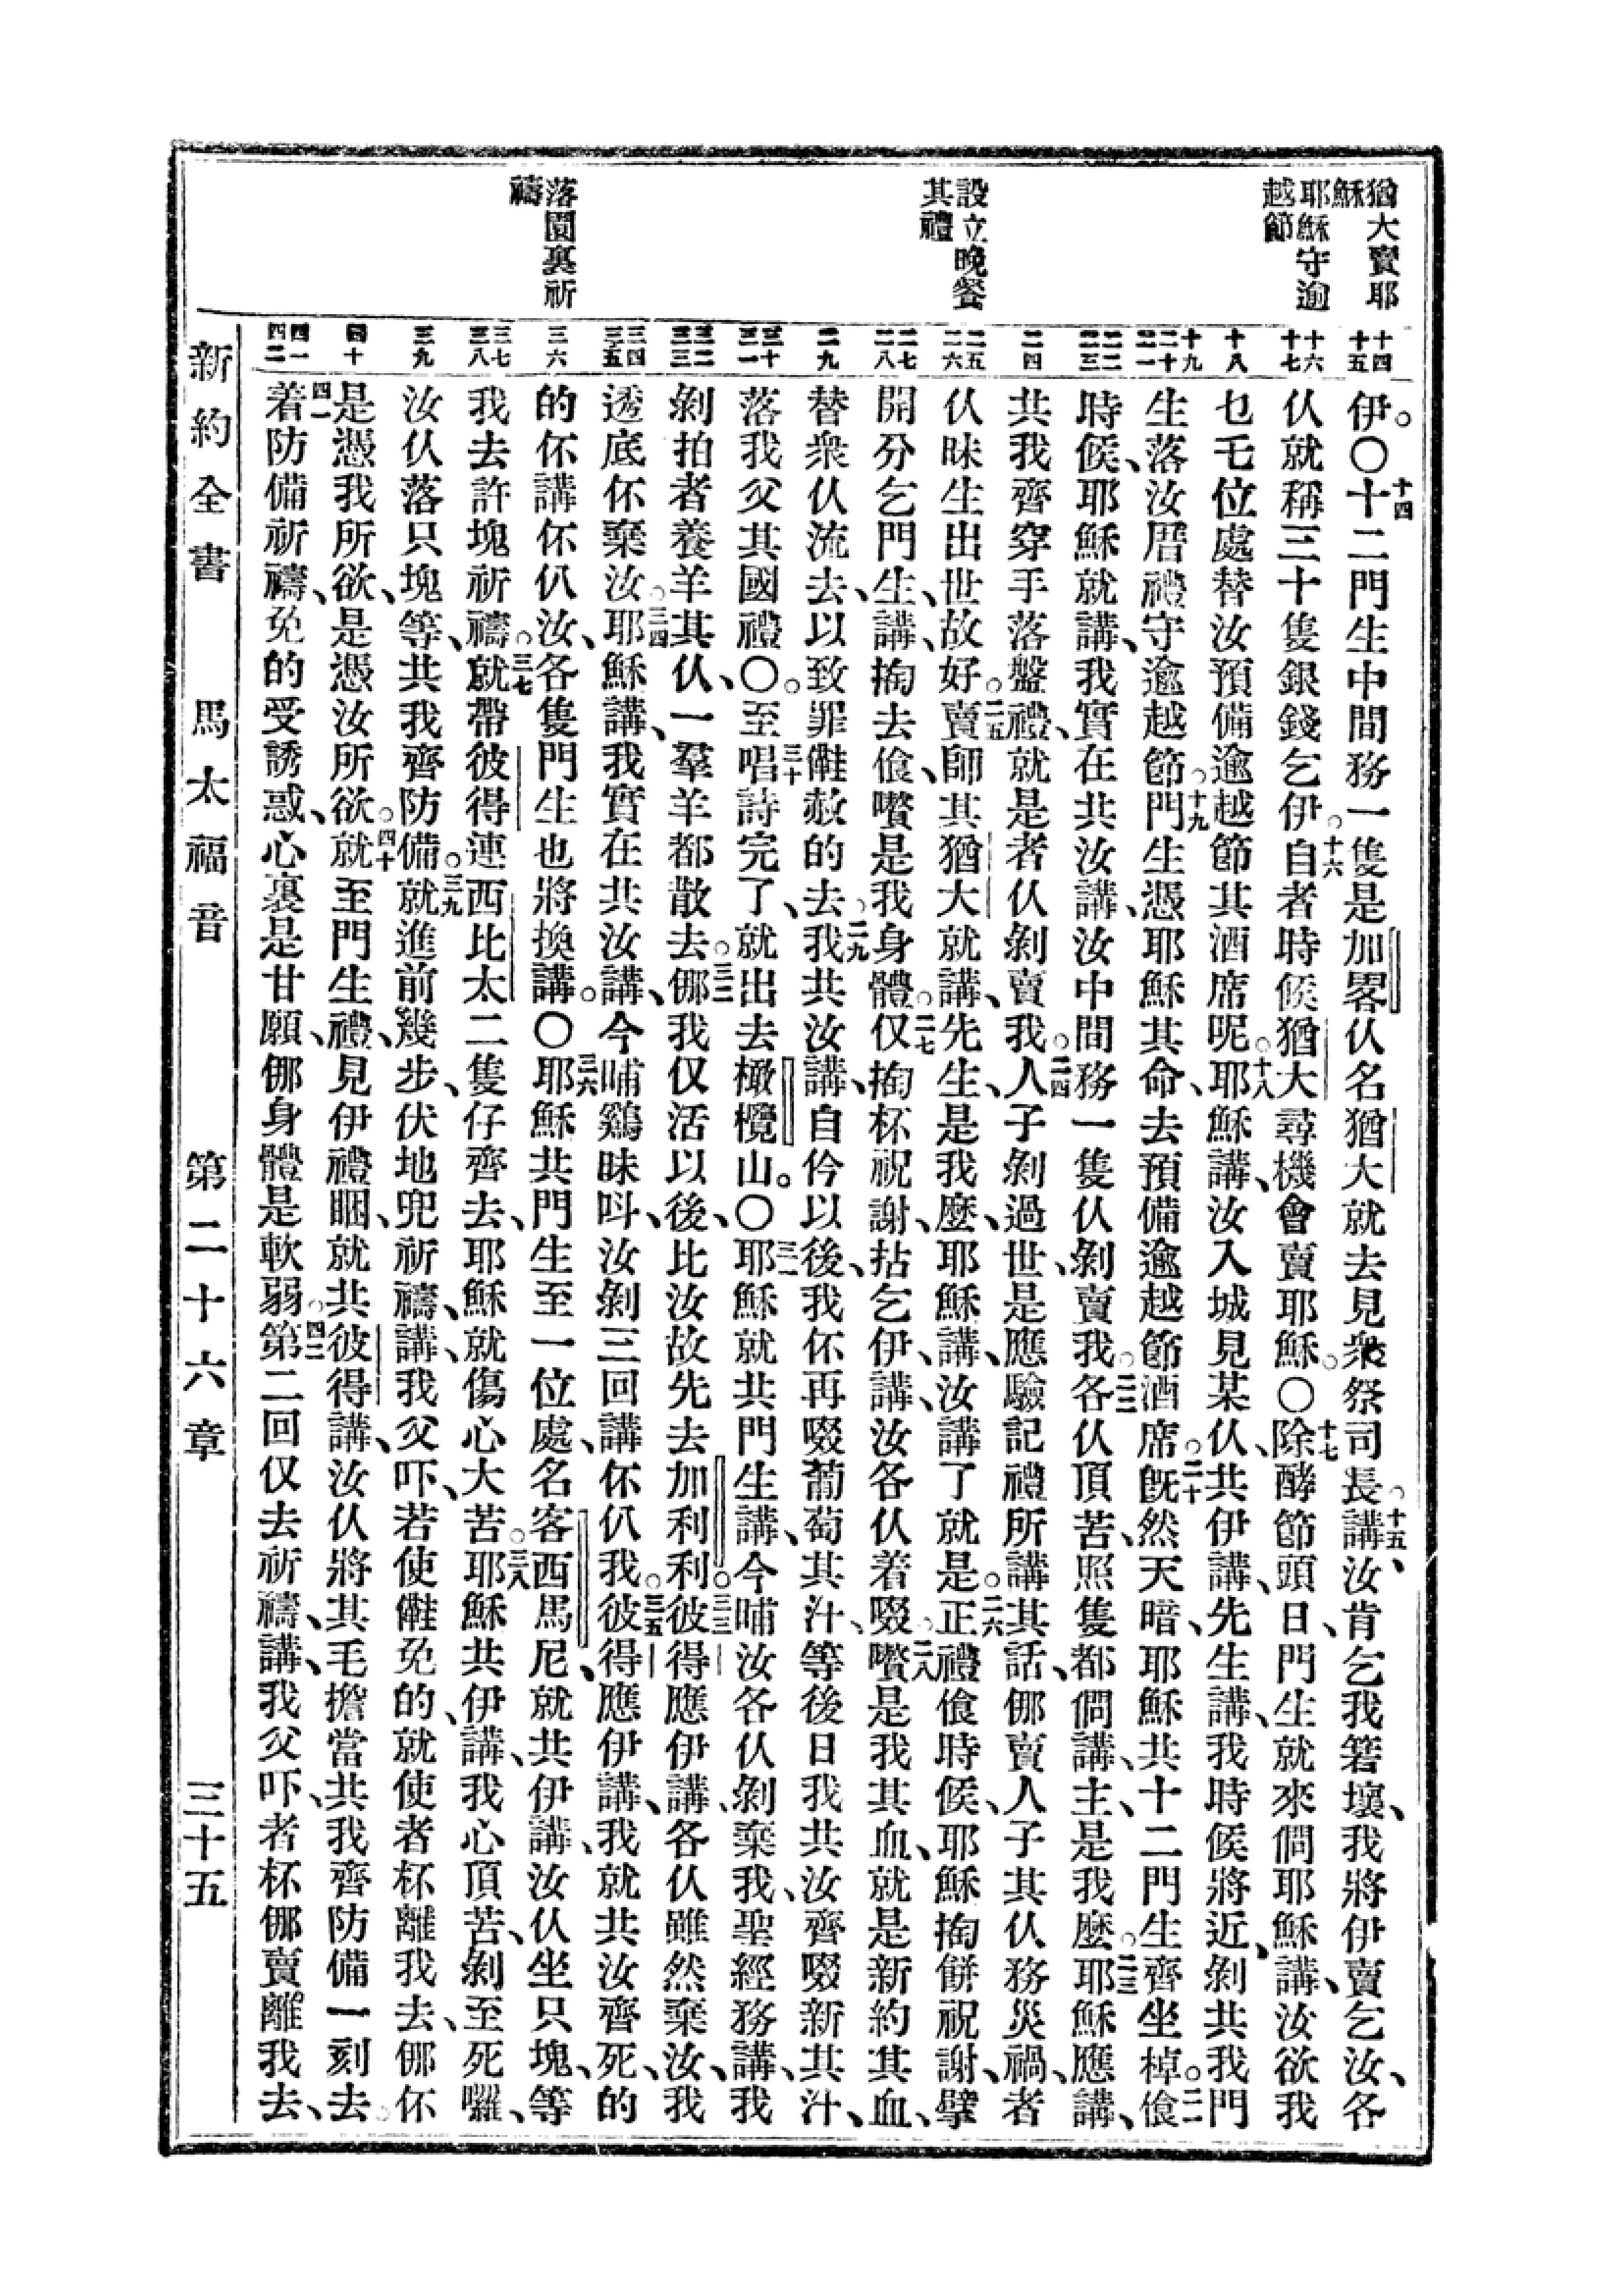 猶大賣耶
穌
耶穌守逾
越節
設立晚餐
其禮
落園裏祈
禱
十四
十五
十六
十七
十八
十九
二十
二一
二二
二三
二四
二五
二六
二七
二八
二九
三十
三一
三二
三三
三四
三五
三六
三七
三八
三九
四十
四一
四二
伊。〇十四十二門生中間務一隻是加畧仈名猶大就去見衆祭司長。十五講、汝肯乞我箬壤、我將伊賣乞汝、各
仈就稱三十隻銀錢乞伊。十六自者時候猶大尋機會賣耶穌。〇十七除酵節頭日、門生就來佣耶穌講、汝欲我
乜乇位處替汝預備逾越節其酒席呢。十八耶穌講、汝入城見某仈、共伊講、先生講、我時候將近、剝共我門
生落汝厝禮守逾越節。十九門生憑耶穌其命、去預備逾越節酒席。二十旣然天暗、耶穌共十二門生齊坐棹。二一傖
時候、耶穌就講、我實在共汝講、汝中間務一隻仈剝賣我。二二各仈頂苦、照隻都佣講、主、是我麽。二三耶穌應講、
共我齊穿手落盤禮、就是者仈剝賣我。二四人子剝過世、是應驗記禮所講其話、倻賣人子其仈務災禍、者
仈昧生出世故好。二五賣師其猶大就講、先生、是我麽、耶穌講、汝講了就是。二六正禮傖時候、耶穌掏餅祝謝、擘
開分乞門生、講、掏去傖、囋是我身體。二七仅掏杯祝謝、拈乞伊、講、汝各仈着啜。二八囋是我其血、就是新約其血、
替衆仈流去、以致罪儺赦的去。二九我共汝講、自伶以後、我伓再啜葡萄其汁、等後日我共汝齊啜新其汁、
落我父其國禮。〇三十至唱詩完了、就出去橄欖山。〇三一耶穌就共門生講、今晡汝各仈剝棄我、聖經務講、我
剝拍者養羊其仈、一羣羊都散去。三二倻我仅活以後、比汝故先去加利利。三三彼得應伊講、各仈雖然棄汝、我
透底伓棄汝。三四耶穌講、我實在共汝講、今晡鷄昧呌、汝剝三回講伓仈我。三五彼得應伊講、我就共汝齊死、的
的伓講伓仈汝、各隻門生也將換講。〇三六耶穌共門生至一位處、名客西馬尼、就共伊講、汝仈坐只塊、等
我去許塊祈禱。三七就帶彼得連西比太二隻仔齊去、耶穌就傷心大苦。三八耶穌共伊講、我心頂苦、剝至死囉、
汝仈落只塊等、共我齊防備。三九就進前幾步、伏地兜祈禱、講、我父吓、若使儺免的、就使者杯離我去、倻伓
是憑我所欲、是憑汝所欲。四十就至門生禮、見伊禮睏、就共彼得講、汝仈將其毛擔當共我齊防備一刻去。
四一着防備祈禱、免的受誘惑、心裏是甘願、倻身體是軟弱。四二第二回仅去祈禱、講、我父吓、者杯倻賣離我去、
新約全書 馬太福音 第二十六章 三十五